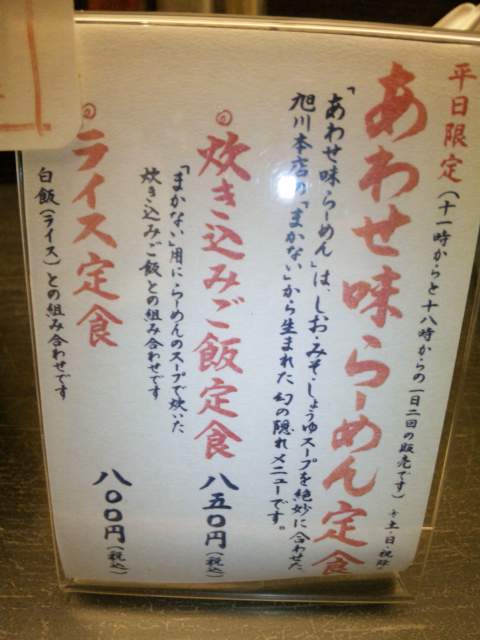 平日限定(十一時からと十八時からの一日二回の販売です)
あわせ味らーめん定食
「あわせ味らーめん」は、しお・みそ・しょうゆスープを絶妙に合わせた
旭川本店の「まかない」から生まれた幻の隠れメニューです。
炊き込みご飯定食 八五〇円(税込)
「まかない」用にらーめんのスープで炊いた
炊き込みご飯との組み合わせです
ライス定食 八〇〇円(税込)
白飯(ライス)との組み合わせです